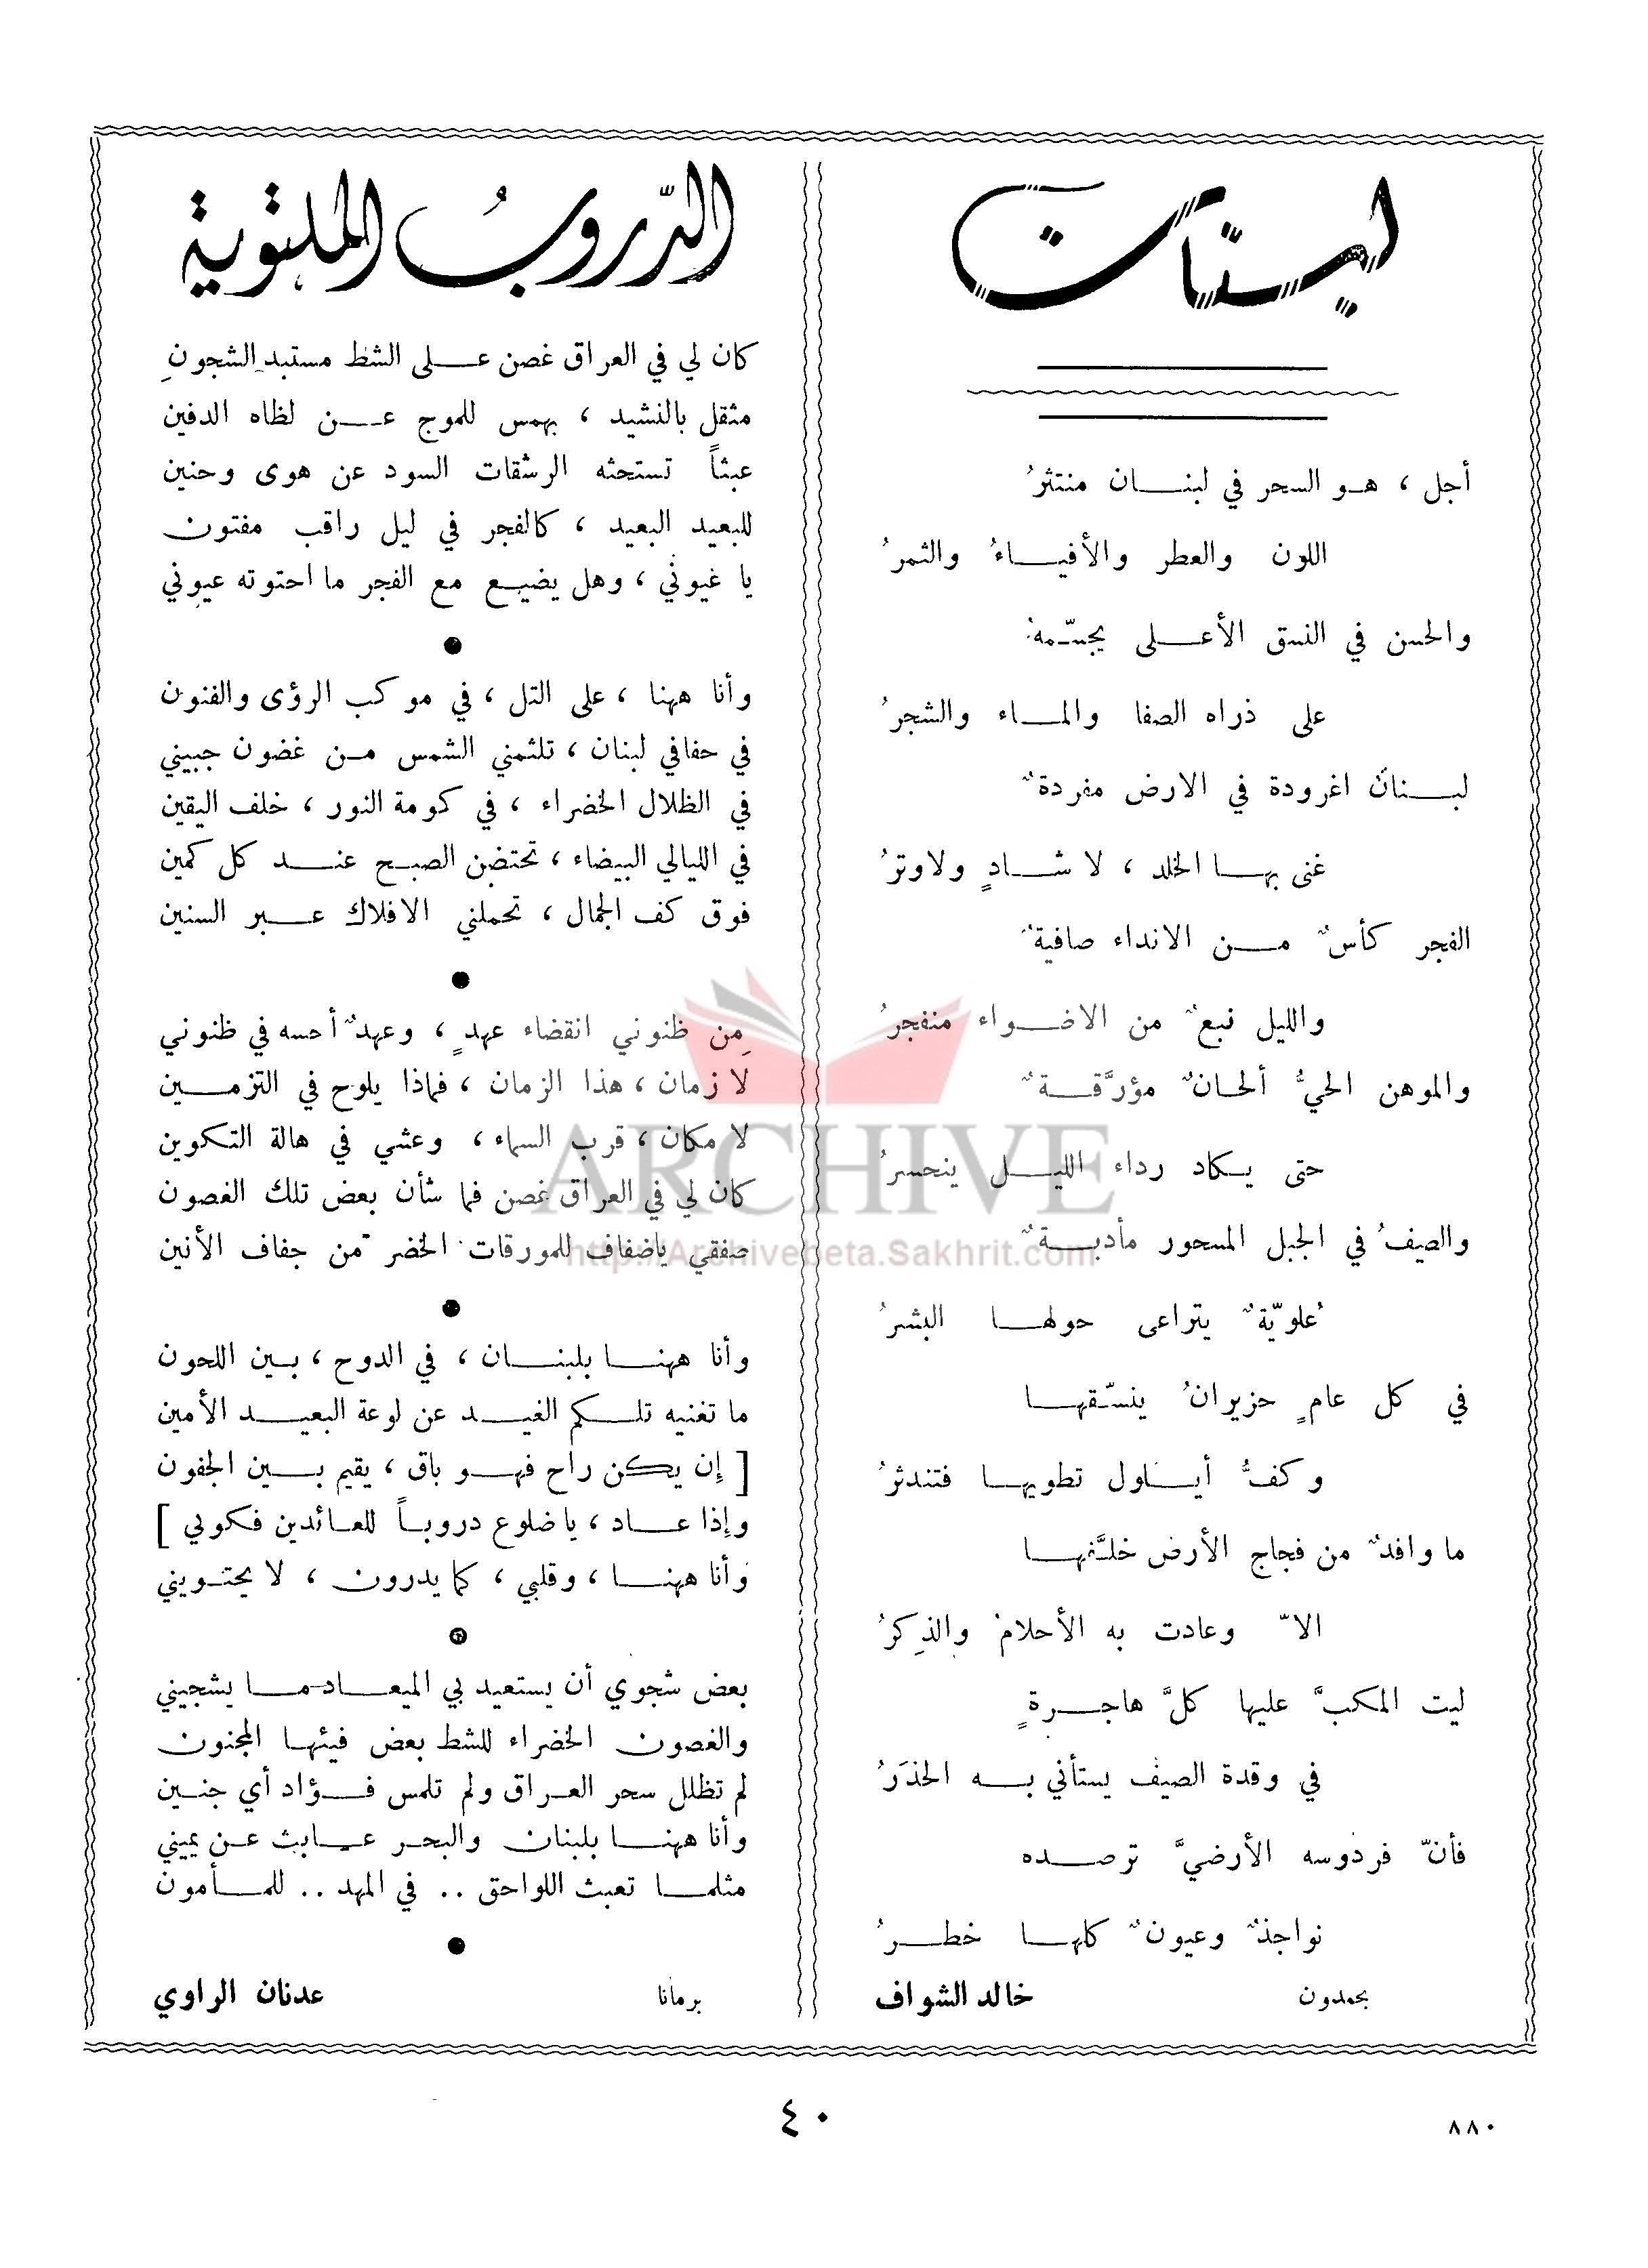 لبنان
أجل ، هو السحر في لبنان منتثرُ
اللون والعطر والأفياءُ والثمرُ
والحسن في النسق الأعلى يجسّمهُ
على ذراه الصفا والماء والشجرُ
لبنان اغرودة في الارض مفردةٌ
غنى بها الخلد ، لا شادٍ ولا وترُ
الفجر كأسٌ من الانداء صافيةٌ
والليل نبعٌ من الاضواء منفجرُ
والموهن الحيُّ ألحانٌ مؤرَّقةٌ
حتى يكاد رداء الليل ينحسرُ
والصيفُ في الجبل المسحور مأدبةٌ
عُلويّةٌ يتراعى حولها البشرُ
في كل عامٍ حزيرانُ ينسّقها
وكفُّ أيلول تطويها فتندثرُ
ما وافدٌ من فجاج الأرض خلَّفها
الاّ وعادت به الأحلامُ والذِكرُ
ليت المكبَّ عليها كلَّ هاجرةٍ
في وقدة الصيف يستأني به الحذَرُ
فأنّ فردوسه الأرضيَّ ترصده
نواجذٌ وعيونٌ كلها خطرُ
بحمدون خالد الشواف
الدّروبُ الملتوية
كان لي في العراق غصن على الشط مستبد الشجونِ
مثقل بالنشيد ، يهمس للموج عن لظاه الدفين
عبثاً تستحثه الرشقات السود عن هوى وحنين
للبعيد البعيد ، كالفجر في ليل راقب مفتون
يا غيوني ، وهل يضيع مع الفجر ما احتوته عيوني
●
وأنا ههنا ، على التل ، في موكب الرؤى والفنون
في حفافي لبنان ، تلثمني الشمس من غضون جبيني
في الظلال الخضراء ، في كومة النور ، خلف اليقين
في الليالي البيضاء ، تحتضن الصبح عند كل كمين
فوق كف الجمال ، تحملني الافلاك عبر السنين
●
مِن ظنوني انقضاء عهدٍ ، وعهدٌ أحسه في ظنوني
لا زمان ، هذا الزمان ، فماذا يلوح في التزمين
لا مكان ، قرب السماء ، وعشي في هالة التكوين
كان لي في العراق غصن فما شأن بعض تلك الغصون
صفقي ياضفاف للمورقات الخضر من جفاف الأنين
●
وأنا ههنا بلبنان ، في الدوح ، بين اللحون
ما تغنيه تلكم الغيد عن لوعة البعيد الأمين
[ إن يكن راح فهو باق ، يقيم بين الجفون
وإذا عاد ، يا ضلوع دروباً للعائدين فكوني ]
وأنا ههنا ، وقلبي ، كما يدرون ، لا يحتويني
●
بعض شجوي أن يستعيد بي الميعاد ما يشجيني
والغصون الخضراء للشط بعض فيئها المجنون
لم تظلل سحر العراق ولم تلمس فؤاد أي جنين
وأنا ههنا بلبنان والبحر عابث عن يميني
مثلما تعبث اللواحق .. في المهد .. للمأمون
●
برمانا عدنان الراوي
ARCHIVE
http://Archivebeta.Sakhrit.com
٤٠
٨٨٠